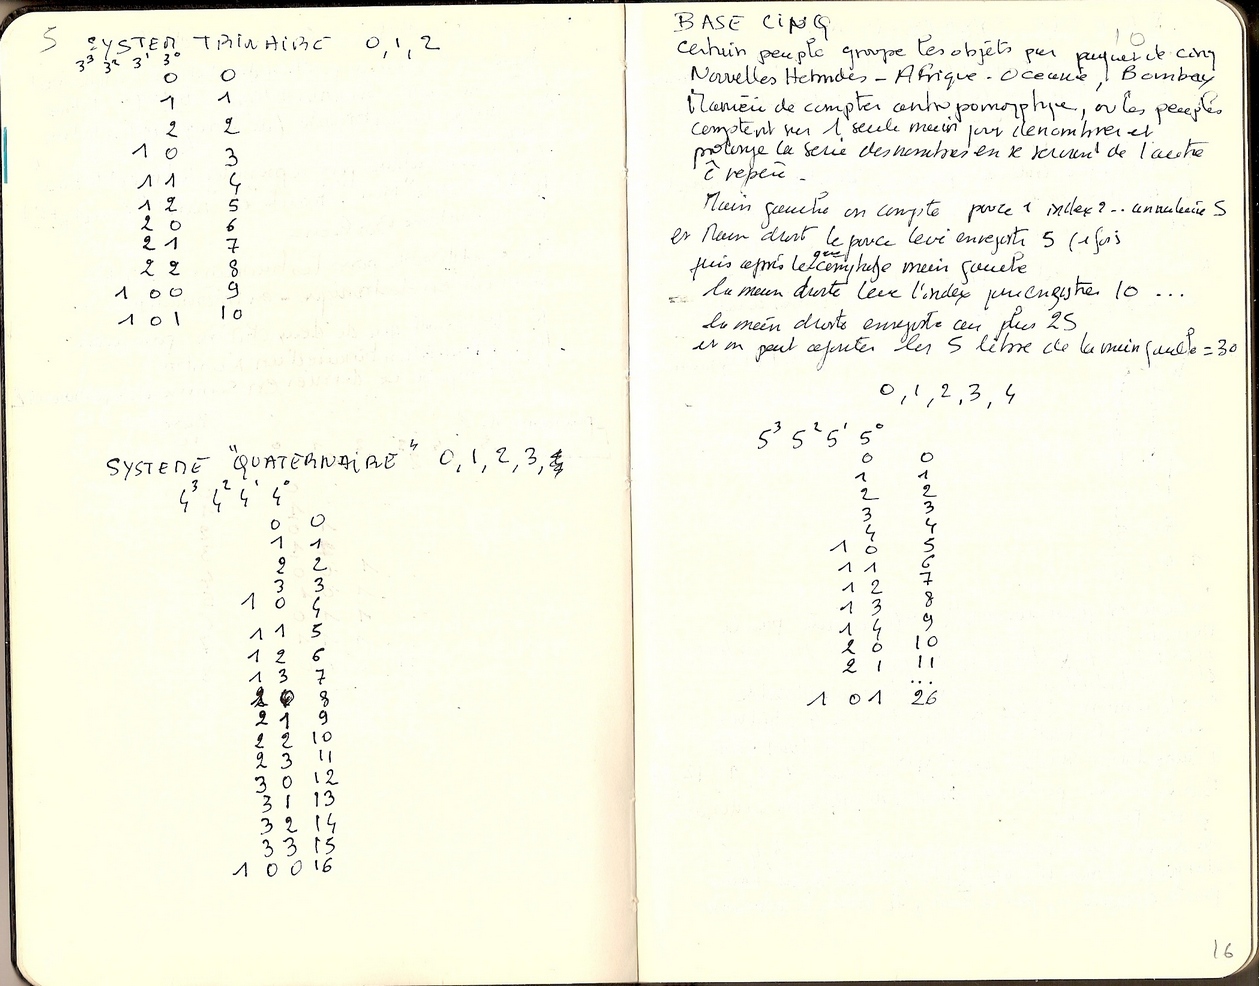 5 SYSTEM TRINAIRE 0, 1, 2
3³ 3² 3¹ 3⁰
0 0
1 1
2 2
1 0 3
1 1 4
1 2 5
2 0 6
2 1 7
2 2 8
1 0 0 9
1 0 1 10
SYSTEME "QUATERNAIRE" 0, 1, 2, 3,
4³ 4² 4¹ 4⁰
0 0
1 1
2 2
3 3
1 0 4
1 1 5
1 2 6
1 3 7
2 0 8
2 1 9
2 2 10
2 3 11
3 0 12
3 1 13
3 2 14
3 3 15
1 0 0 16
BASE CINQ
10
certain peuple groupe les objets par paquet de cinq
Nouvelles Hebrides - Afrique - Oceanie, Bombay
Manière de compter antropomorphique, ou les peuples
comptent sur 1 seule main pour denombrer et
prolonge la serie des nombres en se servant de l'autre
repère -
Main gauche on compte pouce 1 index 2 .. annulaire 5
et Main droit le pouce levé enregistre 5 (1 fois
puis après le comptage main gauche
la main droite leve l'index pour enregistrer 10 ...
la main droite enregistre au plus 25
et on peut ajouter les 5 libre de la main gauche = 30
0, 1, 2, 3, 4
5³ 5² 5¹ 5⁰
0 0
1 1
2 2
3 3
4 4
1 0 5
1 1 6
1 2 7
1 3 8
1 4 9
2 0 10
2 1 11
...
1 0 1 26
16